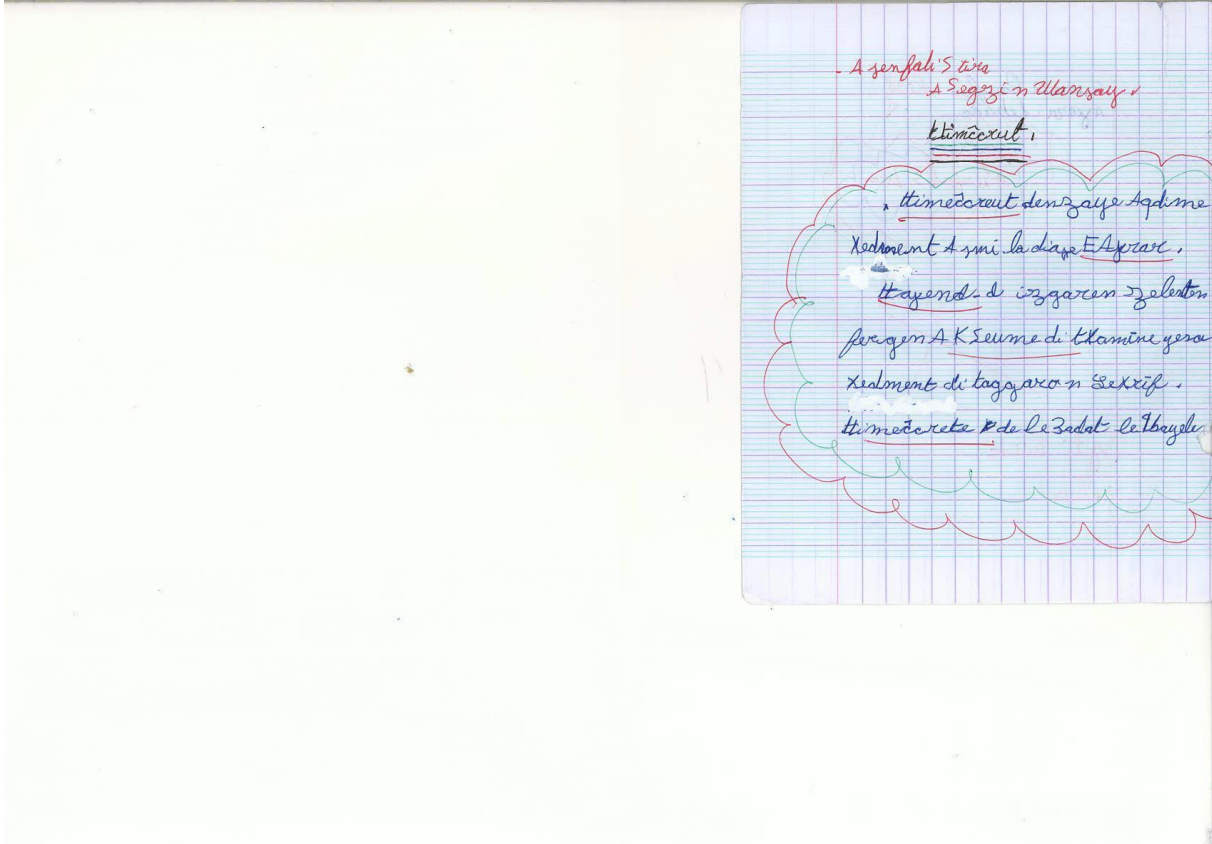 - A senfali S tira
A Segzi n Wansay.
ttimečcrut.
. ttimeččreut denzaye Aqdime
Xedment A smi la diase EAjrar.
ttasend-d izgaren zelenten
ferqen A KSeume di tXamine
Xedment di taggaro n Lexrif.
ttimeččrete de le3adat le